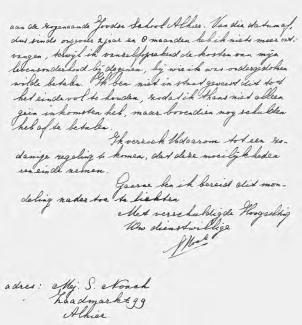 aan de zogenaamde Joodse School Alhier. Van die datum af,
dus sinds ongeveer 2 jaar en 8 maanden heb ik niets meer ont-
vangen, terwijl ik vanzelfsprekend de kosten van mijn
levensonderhoud bij degenen, bij wie ik was ondergedoken
wilde betalen. Ik ben niet in staat geweest dit tot
het einde vol te houden, zodat ik thans niet alleen
geen inkomsten heb, maar bovendien nog schulden
heb af te betalen.
Ik verzoek U daarom tot een zo-
danige regeling te komen, dat deze moeilijkheden
een einde nemen.
Gaarne ben ik bereid dit mon-
deling nader toe te lichten
Met verschuldigde Hoogachting
Uw dienstwillige
adres: Mej. S. Noach
Raadmarkt 99
Alhier